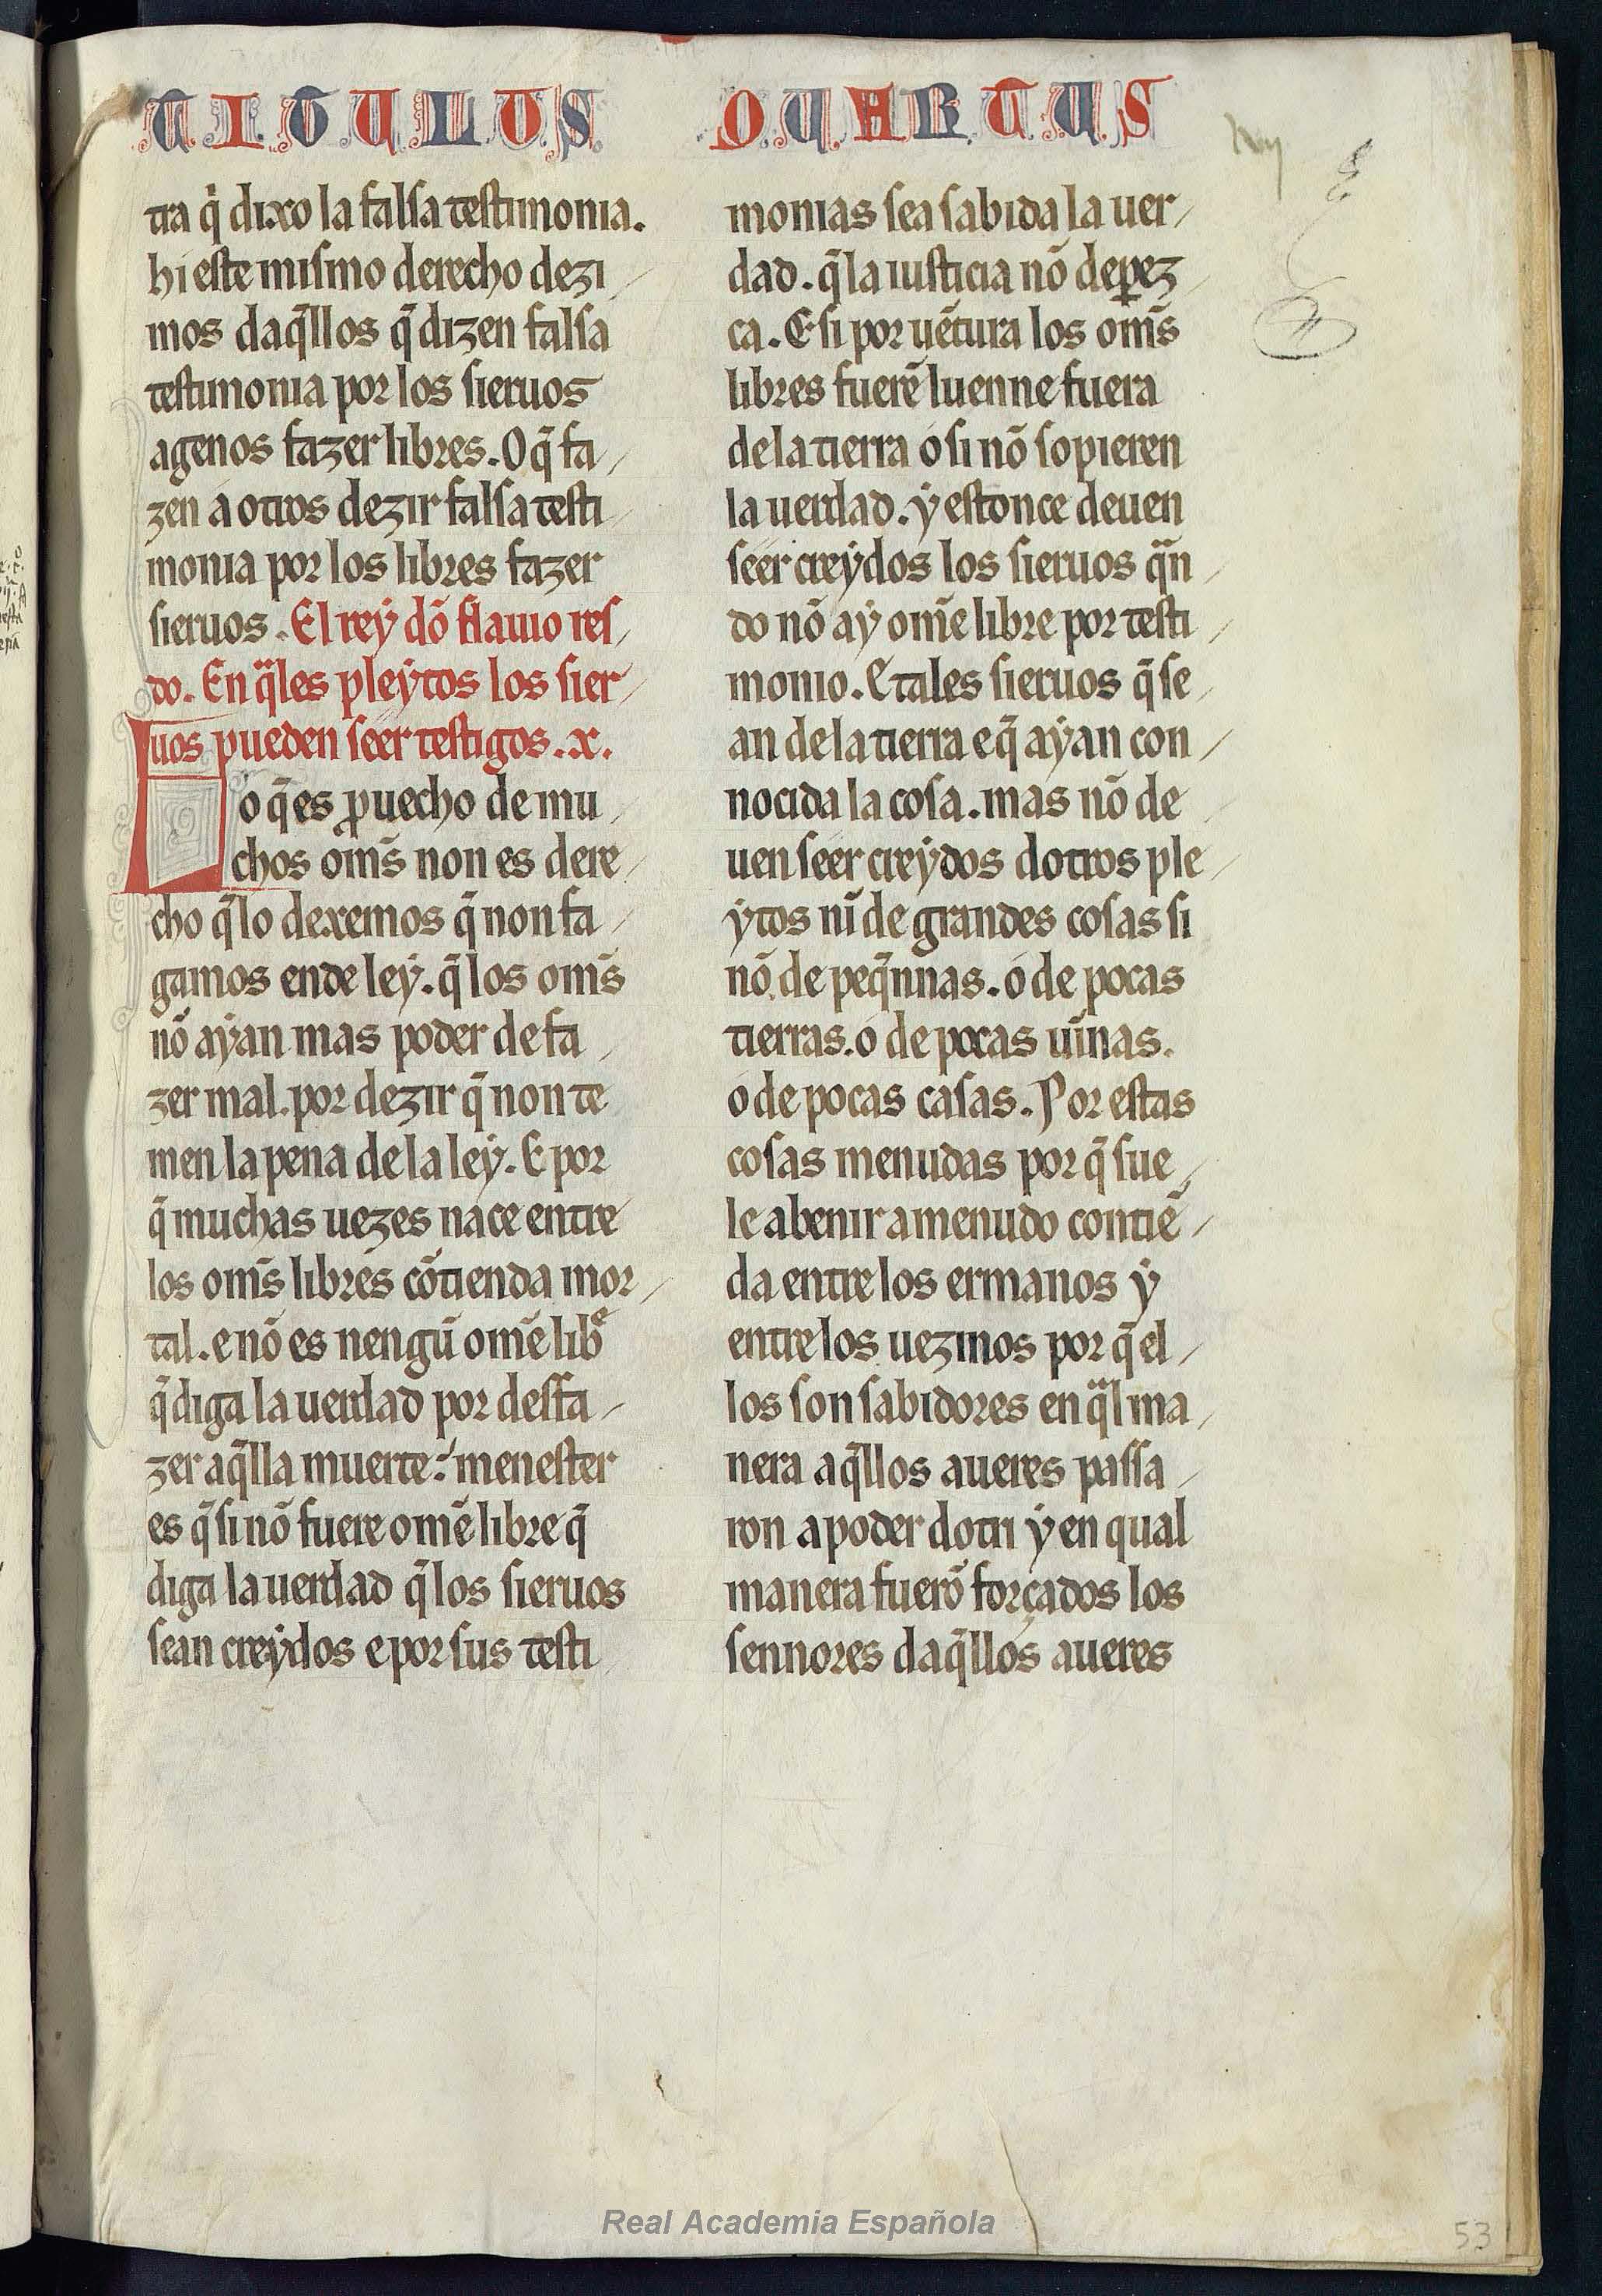 TITULUS QUARTUS
tra q̇ dixo la falsa testimonia.
hi este mismo derecho dezi
mos daq̃llos q̃ dizen falsa
testimonia por los sieruos
agenos fazer libres. O q̃ fa
zen a otros dezir falsa testi
monia por los libres fazer
sieruos. El rey dõ flauio res
do. En q̃les pleytos los sier
uos pueden seer testigos. x.
Lo q̃ es ꝓuecho de mu
chos om̃s non es dere
cho q̃ lo dexemos q̃ non fa
gamos ende ley. q̃ los om̃s
nõ ayan mas poder de fa
zer mal. por dezir q̃ non te
men la pena de la ley. E por
q̃ muchas uezes nace entre
los om̃s libres cõtienda mor
tal. e nõ es nengũ om̃e libᵉ
q̃ diga la uerdad por desfa
zer aq̃lla muerte: menester
es q̃ si nõ fuere om̃e libre q̃
diga la uerdad q̃ los sieruos
sean creydos e por sus testi
monias sea sabida la uer
dad. q̃ la iusticia nõ deꝑez
ca. E si por uẽtura los om̃s
libres fuerẽ luenne fuera
de la tierra o si nõ sopieren
la uerdad. y estonce deuen
seer creydos los sieruos q̃n
do nõ ay om̃e libre por testi
monio. E tales sieruos q̃ se
an de la tierra e q̃ ayan con
nocida la cosa. mas nõ de
uen seer creydos dotros ple
ytos nĩ de grandes cosas si
nõ de peq̃nnas. o de pocas
tierras. o de pocas uĩnas.
o de pocas casas. Por estas
cosas menudas por q̃ sue
le abenir a menudo contiẽ
da entre los ermanos y
entre los uezinos por q̃ el
los son sabidores en q̃l ma
nera aq̃llos aueres passa
ron a poder dotri y en qual
manera fuerõ forçados los
sennores daq̃llos aueres
Real Academia Española
53